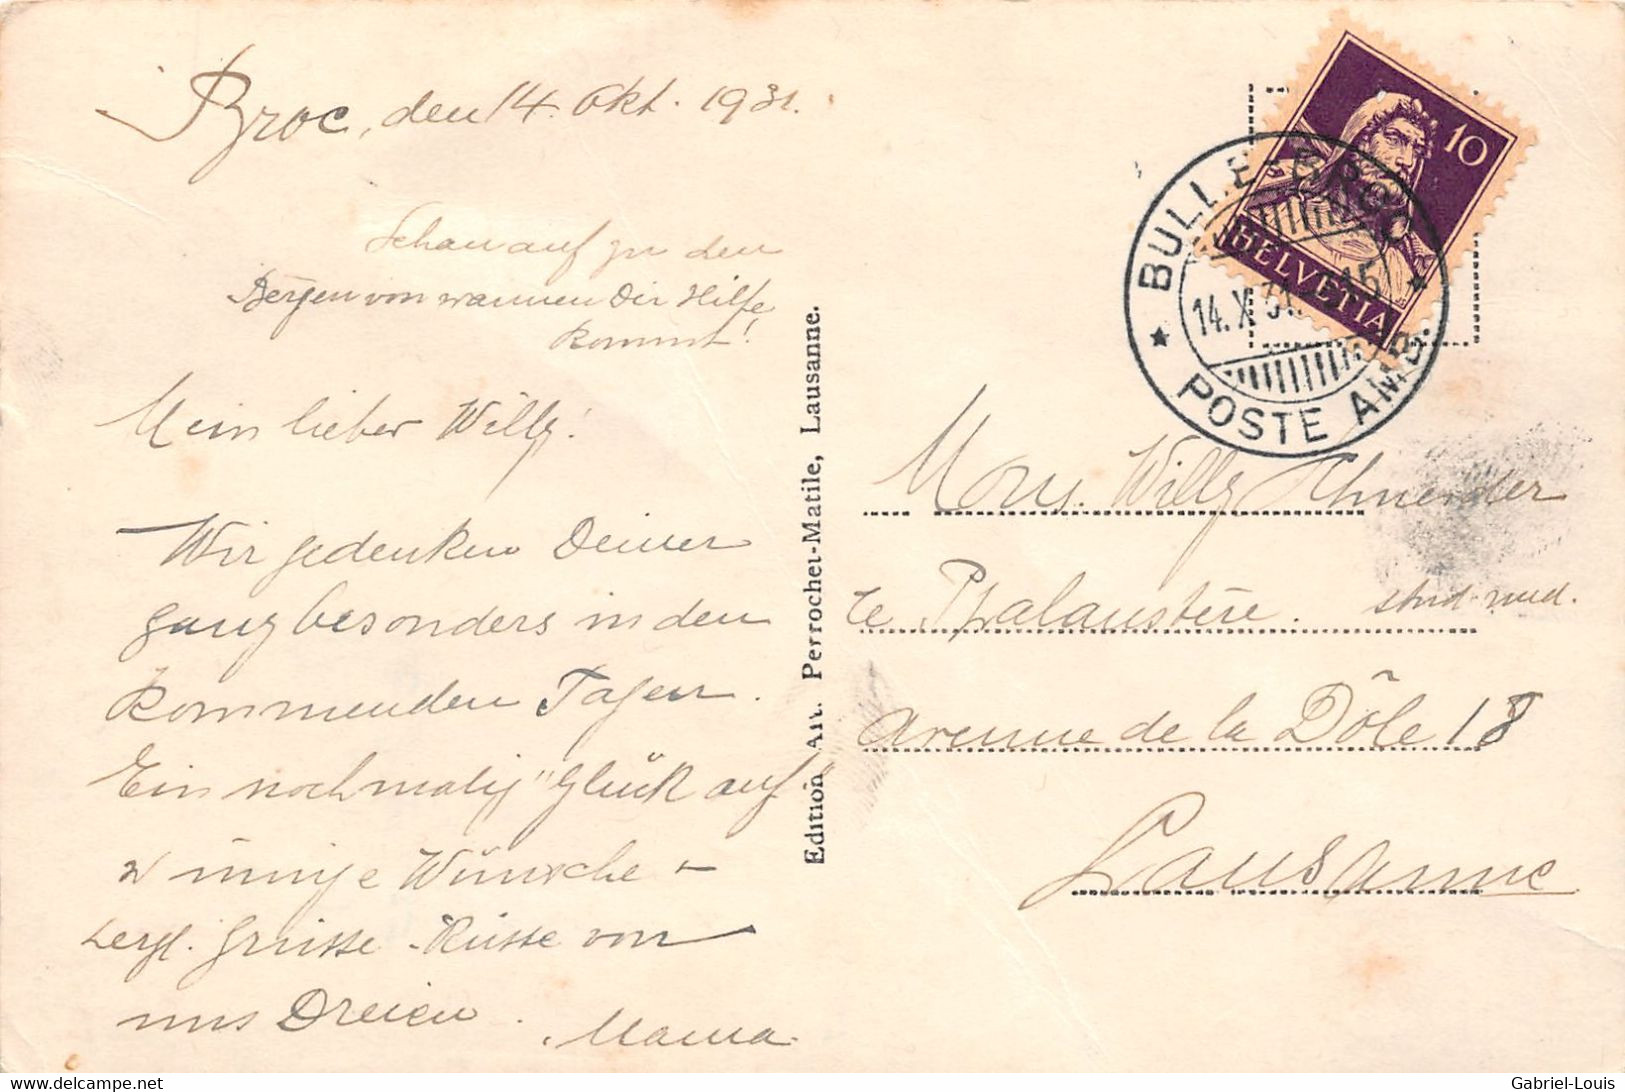 Broc, den 14. Okt. 1931.
Schau auf zu den
Bergen von wannen Dir Hilfe
kommt!
Mein lieber Willy!
Wir gedenken Deiner
ganz besonders in den
kommenden Tagen.
Ein nochmalig "Glück auf"
innige Wünsche +
herzl. Grüsse - Küsse von
uns Dreien.
Mama.
Edition Art. Perrochet-Matile, Lausanne.
10
HELVETIA
BULLE-BROC
14. X 31.
POSTE AMB.
Mons. Willy Schneider
Le Phalanstère. stud. med.
Avenue de la Dôle 18
Lausanne
delcampe.net
Gabriel-Louis